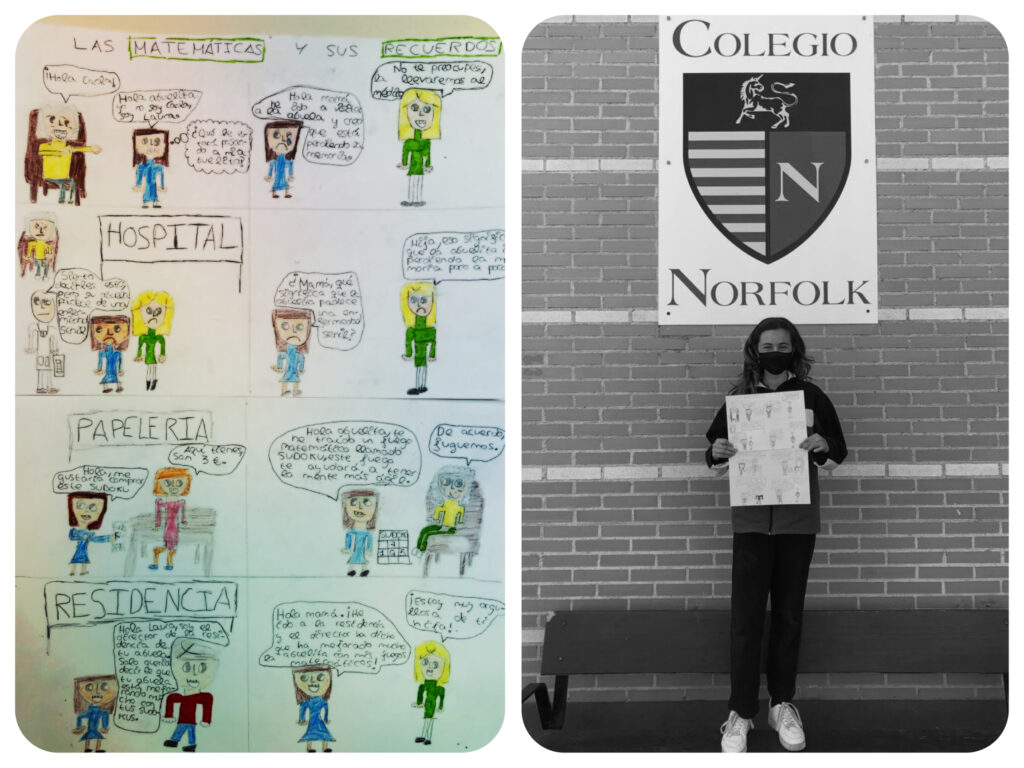 LAS MATEMÁTICAS Y SUS RECUERDOS
¡Hola Carla!
Hola abuelita
yo no soy Carla,
soy Laura.
¿Qué le es
tará pasan
do a mi a
buelita?
Hola mamá,
he ido a
a la abuela y creo
que está
perdiendo la
memoria.
No te preocupes,
la llevaremos al
médico.
HOSPITAL
Siento
decirles esto,
pero su abuela
padece de una
enfer-
medad
senil
¿Mamá, qué
significa que la
abuelita padece
una en
fermedad
senil?
Hija, eso signifi
que la abuelita
perdiendo la m
moria poco a poco
PAPELERIA
Hola, me
gustaría comprar
este SUDOKU
Aquí tienes,
son 3 €.
Hola abuelita, te
he traido un juego
matemático llamado
SUDOKU, este juego
te ayudará a tener
la mente más ágil.
SUDOKU
De acuerdo,
juguemos.
RESIDENCIA
Hola Laura, soy el
director de la resi
dencia de
tu abuela.
Solo quería
decirte que
tu abuela
está mejo-
rando mu
cho con
tus sudo-
kus.
Hola mamá. ¡He
ido a la residencia
y el director ha dicho
que ha mejorado mucho
la abuelita con mis juegos
matemáticos!
¡Estoy muy orgu
llosa de ti
hija!
COLEGIO
N
NORFOLK